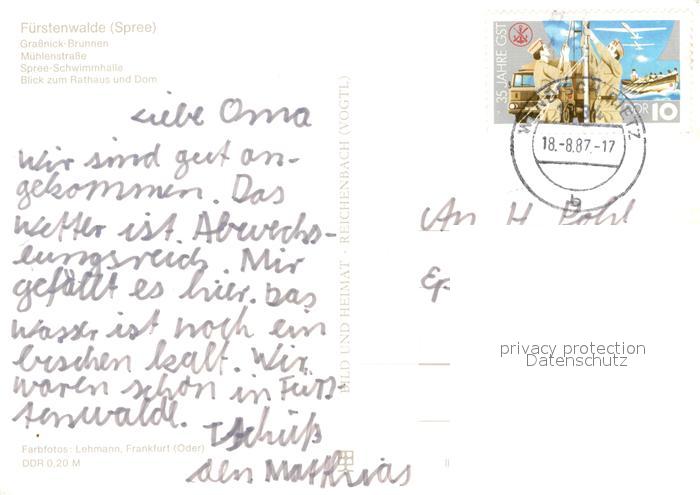 Fürstenwalde (Spree)
Graßnick-Brunnen
Mühlenstraße
Spree-Schwimmhalle
Blick zum Rathaus und Dom
Liebe Oma
Wir sind gut an-
gekommen. Das
Wetter ist Abwechs-
lungsreich. Mir
gefällt es hier. Das
Wasser ist noch ein
bischen kalt. Wir
waren schon in Fürs-
tenwalde.
Tschüß
den Matthias
Farbfotos: Lehmann, Frankfurt (Oder)
DDR 0,20 M
BILD UND HEIMAT · REICHENBACH (VOGTL)
35 JAHRE GST
DDR 10
18.-8.87.-17
b
An H. Pohl
privacy protection
Datenschutz